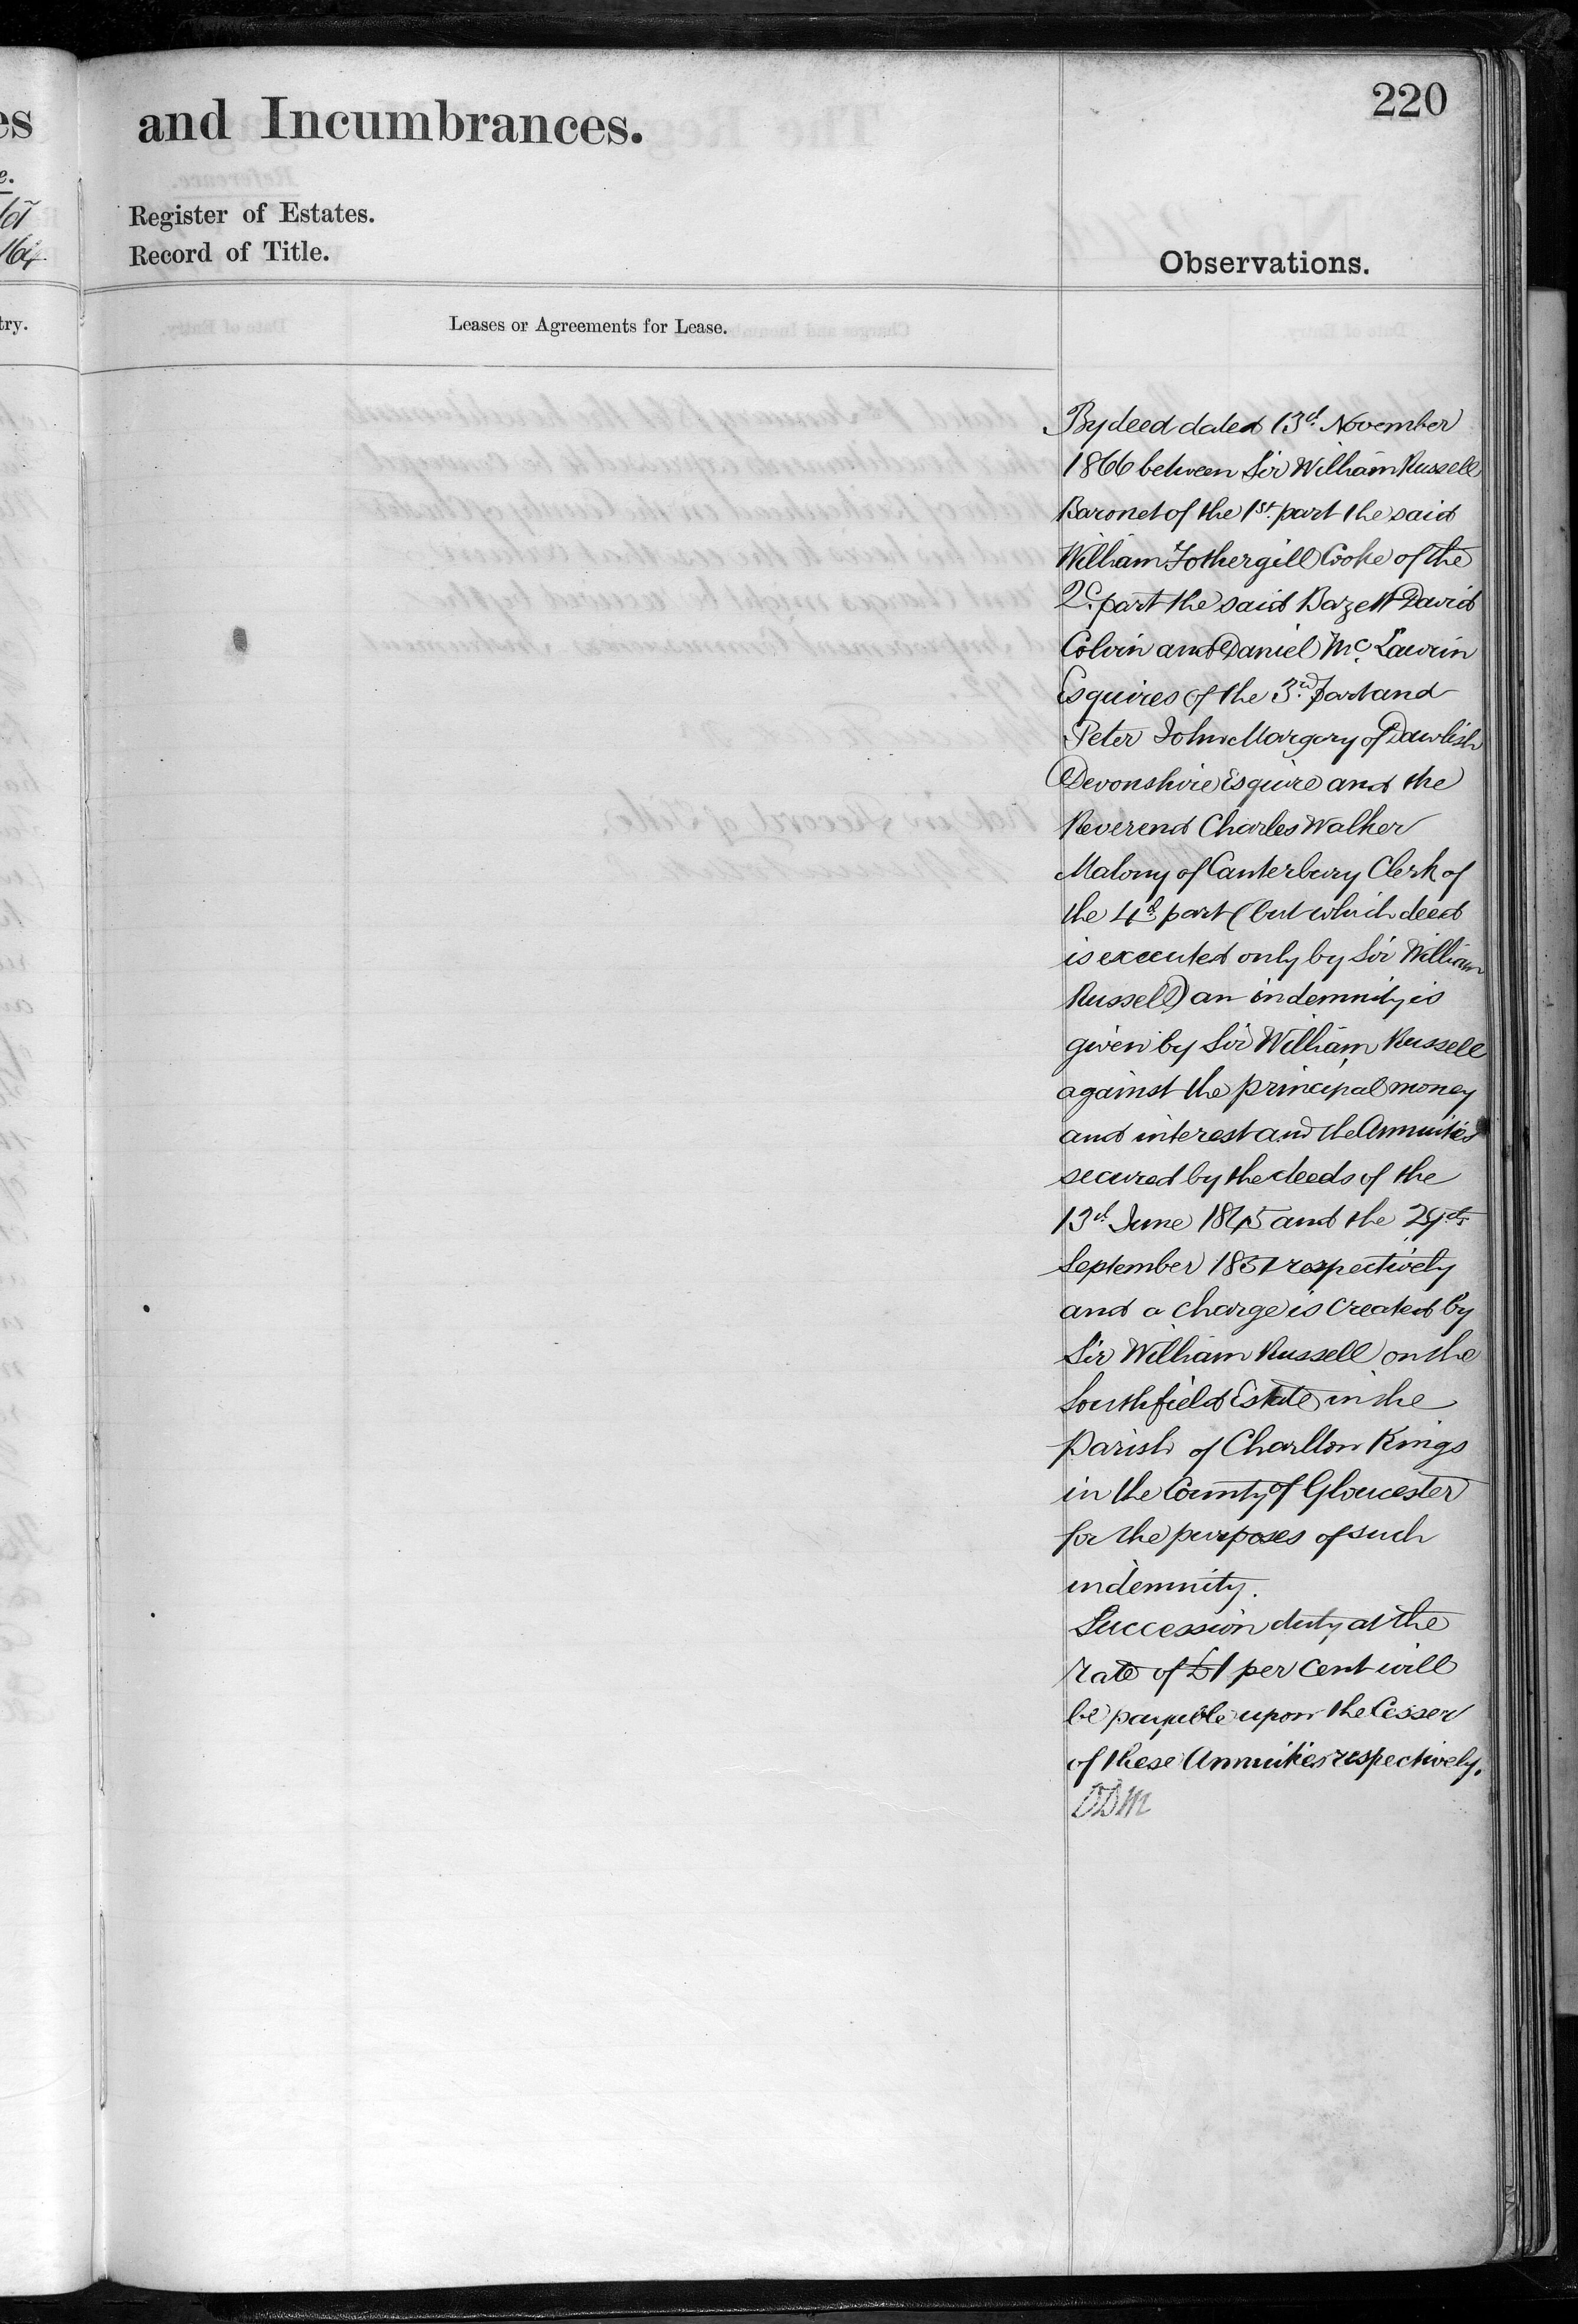 es
and Incumbrances.
220
e.
Register of Estates.
164
Record of Title.
Observations.
try.
Leases or Agreements for Lease.
By deed dated 13th November
1866 between Sir William Russell
Baronet of the 1st part the said
William Fothergill Cooke of the
2d. part the said Bazett David
Colvin and Daniel Mc. Laurin
Esquires of the 3rd. part and
Peter John Margary of Dawlish
Devonshire Esquire and the
Reverend Charles Walker
Malony of Canterbury Clerk of
the 4th part (but which deed
is executed only by Sir William
Russell) an indemnity is
given by Sir William Russell
against the principal money
and interest and the Annuities
secured by the deeds of the
13th June 1845 and the 29th
September 1851 respectively
and a charge is created by
Sir William Russell on the
Southfield Estate in the
Parish of Charlton Kings
in the County of Gloucester
for the purposes of such
indemnity.
Succession duty at the
rate of £1 per Cent will
be payable upon the Cesser
of these Annuities respectively.